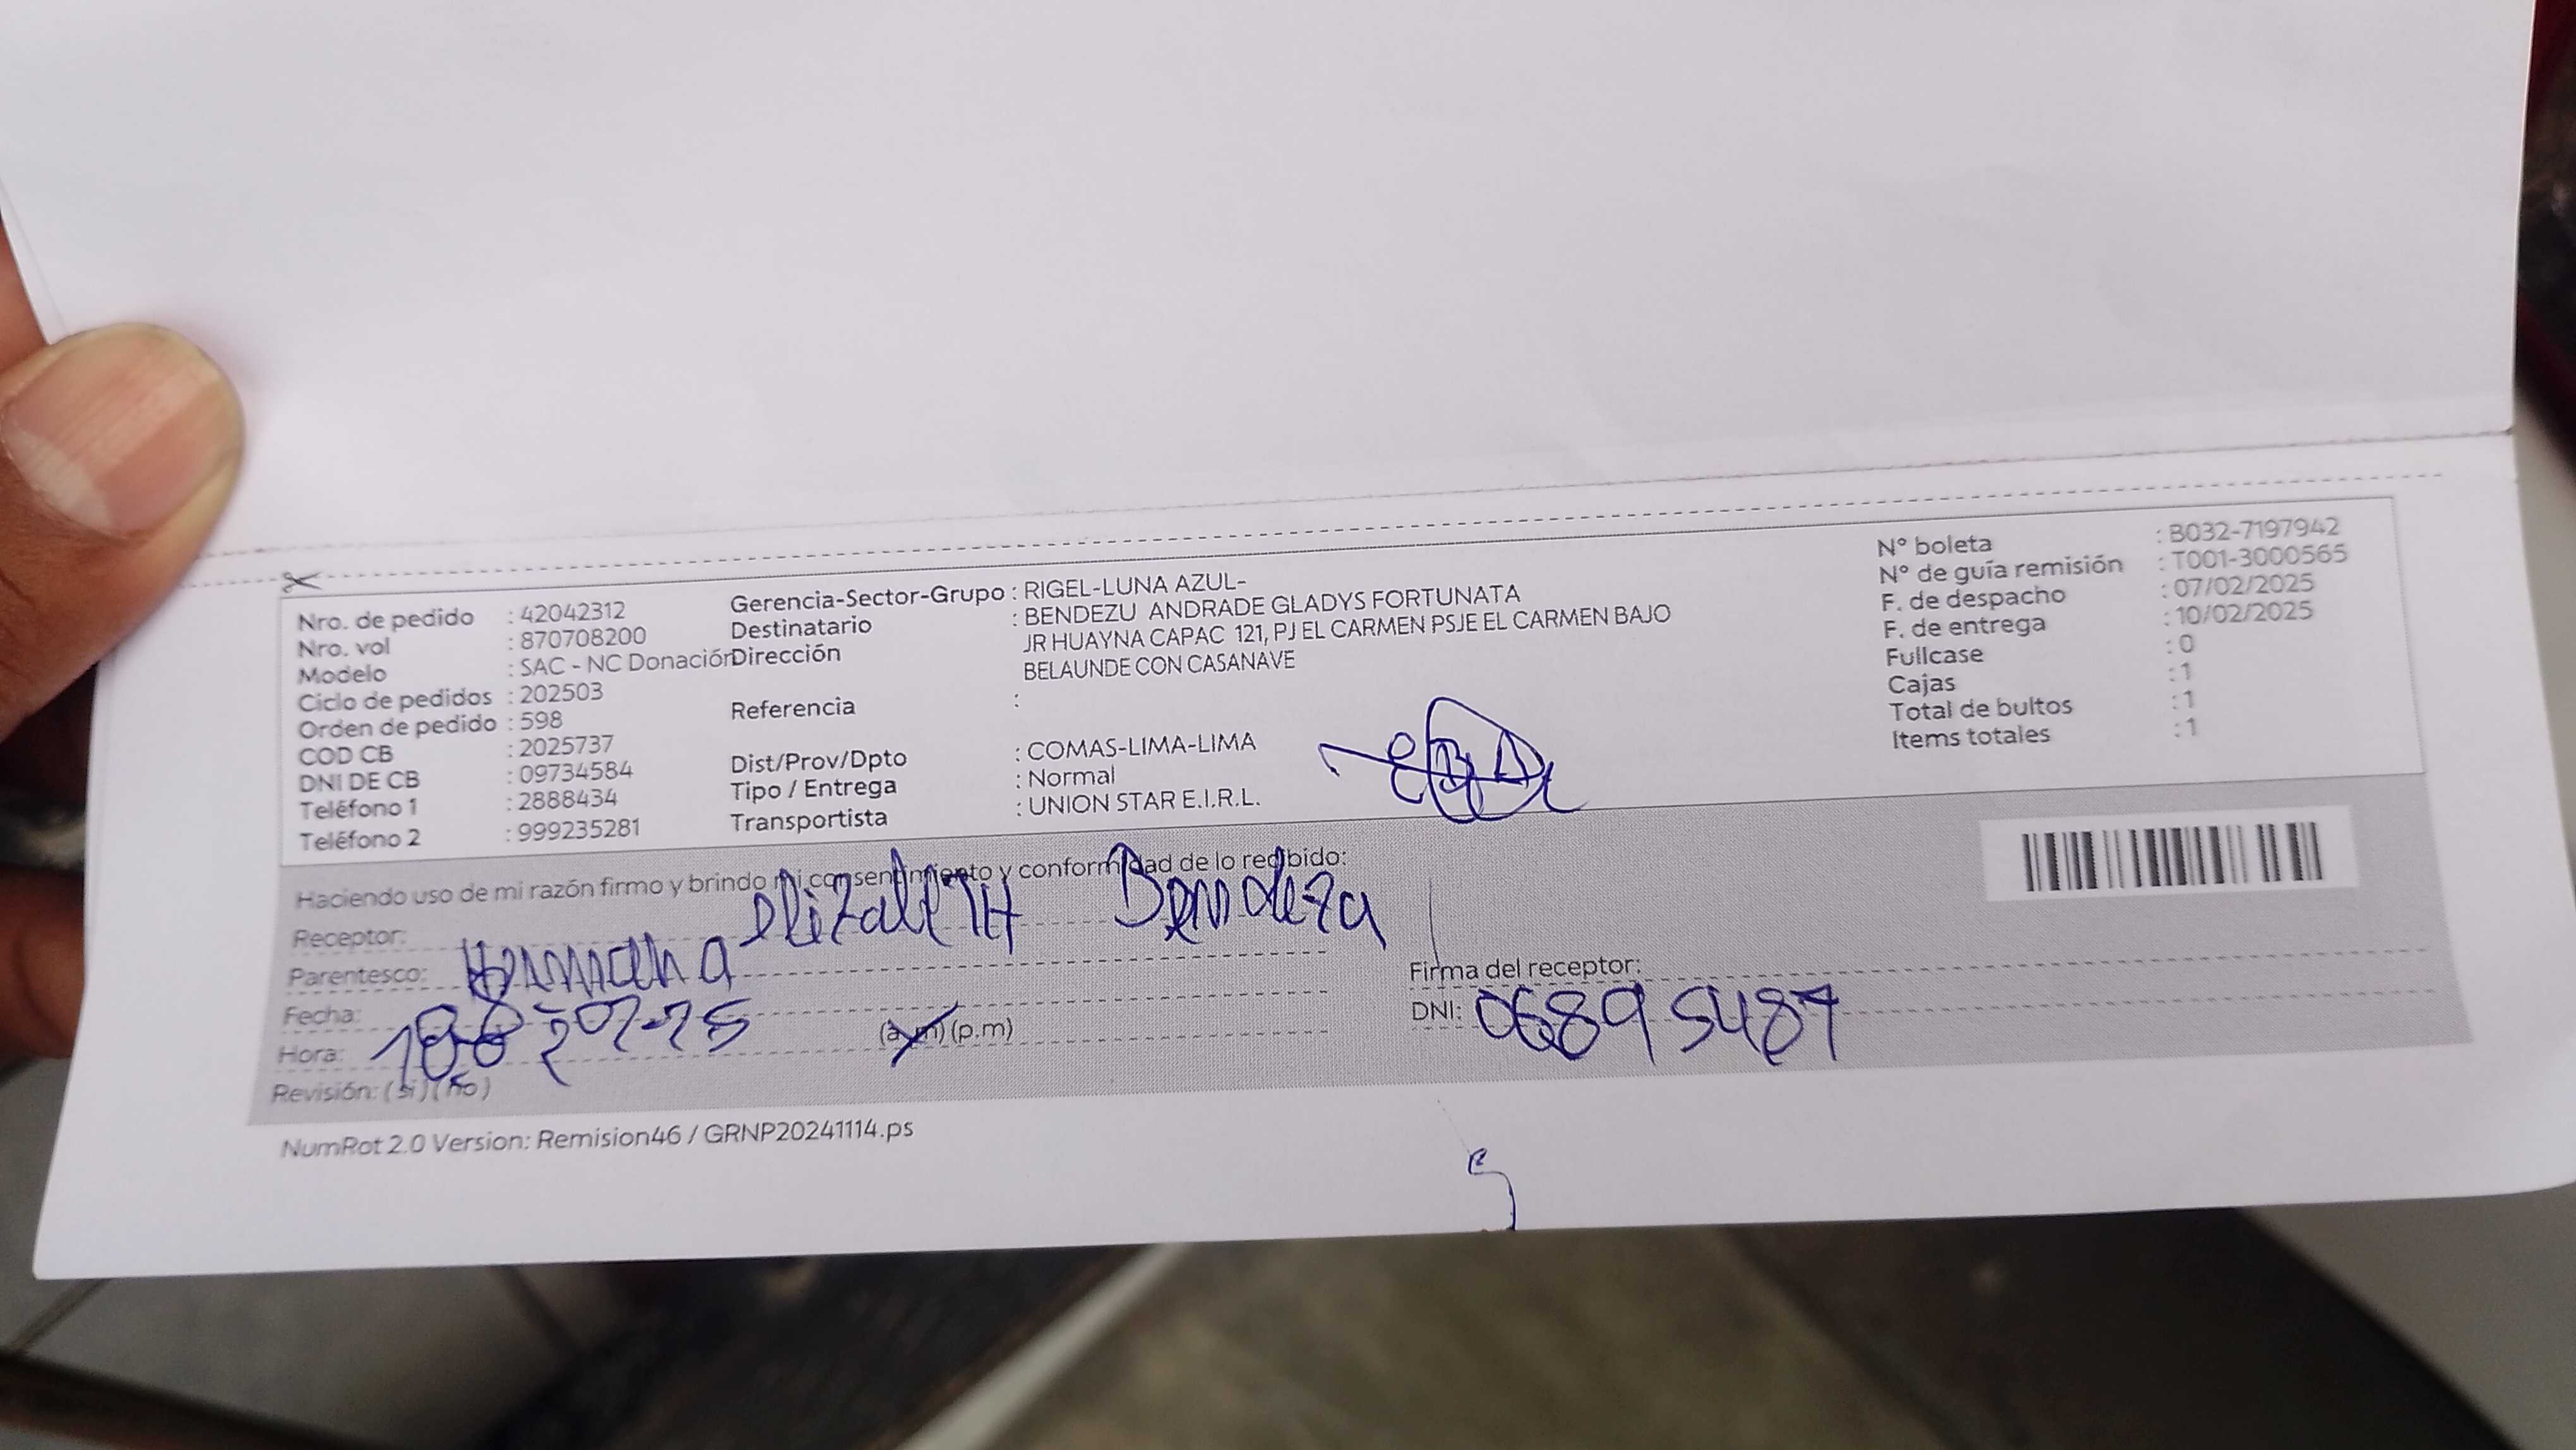 Nro. de pedido : 42042312
Nro. vol : 870708200
Modelo : SAC - NC Donación
Ciclo de pedidos : 202503
Orden de pedido : 598
COD CB : 2025737
DNI DE CB : 09734584
Teléfono 1 : 2888434
Teléfono 2 : 999235281
Gerencia-Sector-Grupo : RIGEL-LUNA AZUL-
Destinatario : BENDEZU ANDRADE GLADYS FORTUNATA
Dirección JR HUAYNA CAPAC 121, PJ EL CARMEN PSJE EL CARMEN BAJO
BELAUNDE CON CASANAVE
Referencia :
Dist/Prov/Dpto : COMAS-LIMA-LIMA
Tipo / Entrega : Normal
Transportista : UNION STAR E.I.R.L.
N° boleta : B032-7197942
N° de guía remisión : T001-3000565
F. de despacho : 07/02/2025
F. de entrega : 10/02/2025
Fullcase : 0
Cajas : 1
Total de bultos : 1
Items totales : 1
Haciendo uso de mi razón firmo y brindo mi consentimiento y conformidad de lo recibido:
Receptor: elizabeTH Bendezu
Parentesco: Hermana
Fecha:
Hora: (a.m) (p.m)
Revisión: (si) (no)
Firma del receptor:
DNI: 06895487
NumRot 2.0 Version: Remision46 / GRNP20241114.ps